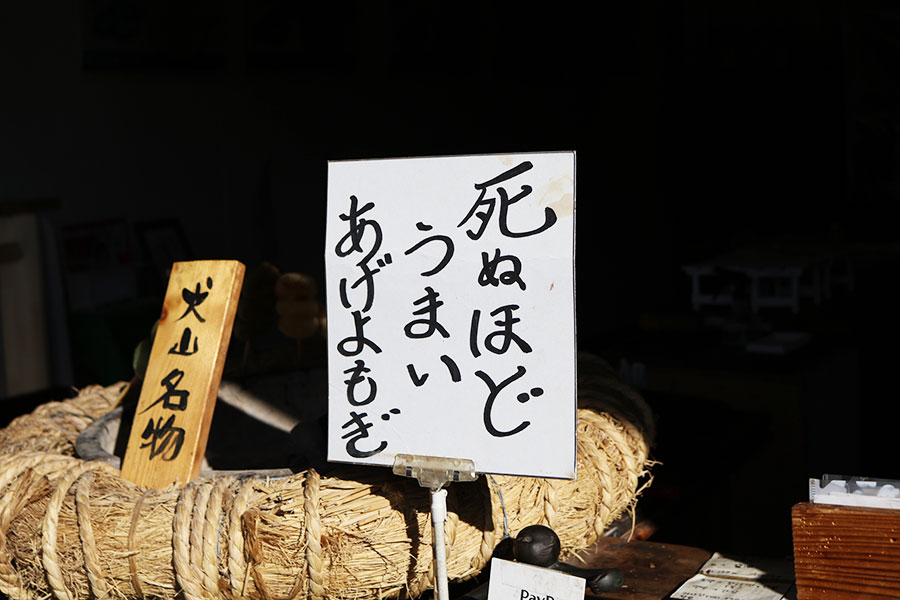 死ぬほど
うまい
あげよもぎ
犬山名物
PayP